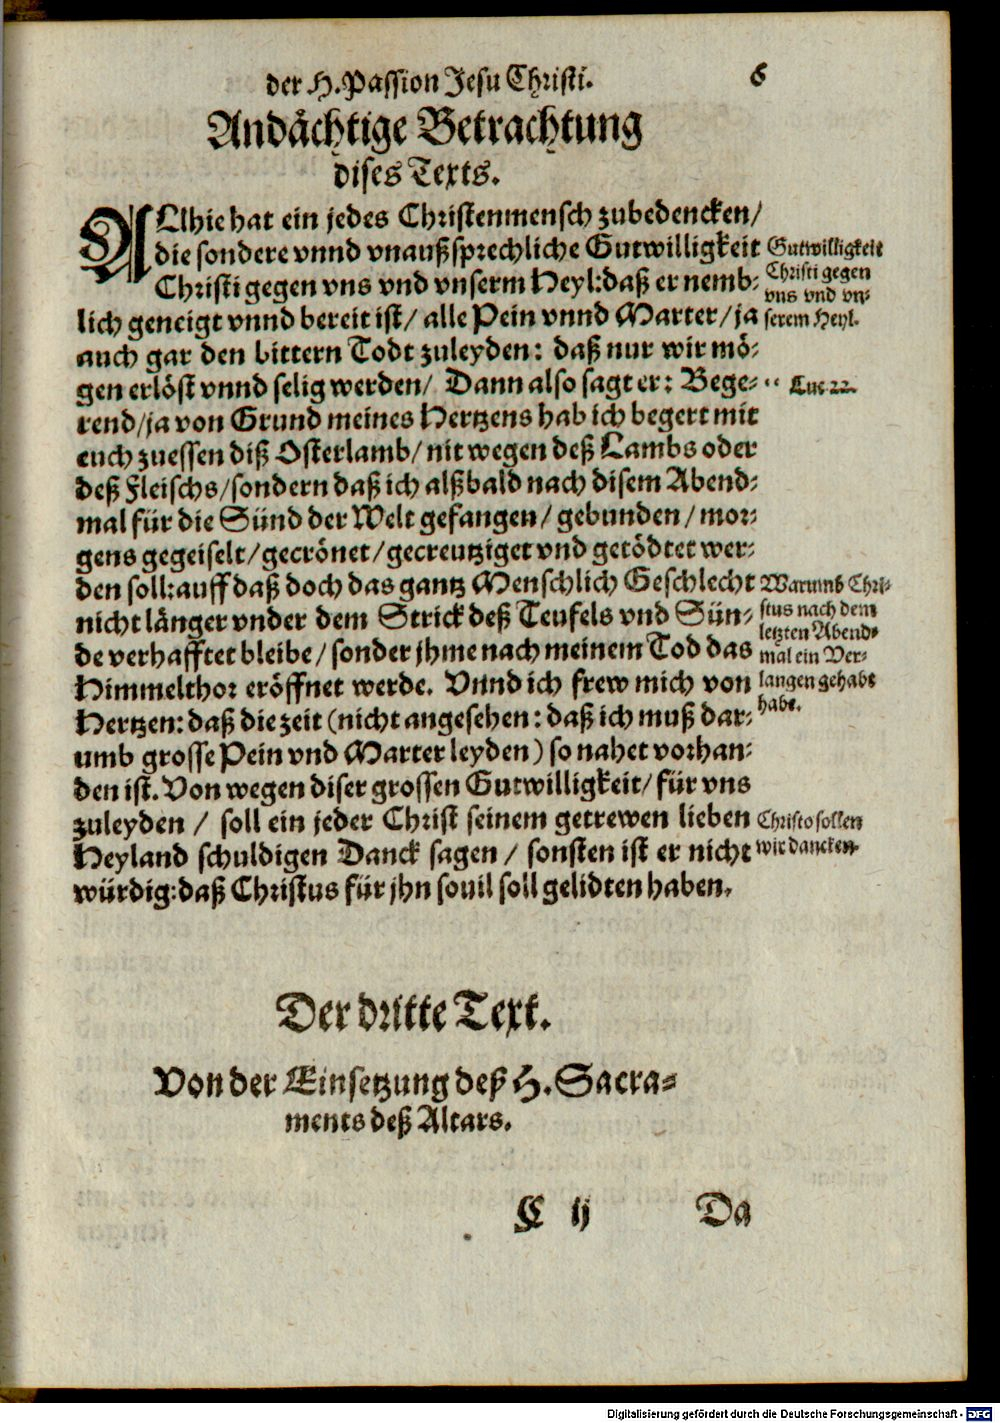 der H. Passion Jesu Christi. 6
Andächtige Betrachtung
dises Texts.
ALlhie hat ein jedes Christenmensch zubedencken/
die sondere vnnd vnaußsprechliche Gutwilligkeit
Christi gegen vns vnd vnserm Heyl: daß er nemb-
lich geneigt vnnd bereit ist/ alle Pein vnnd Marter/ ja
auch gar den bittern Todt zuleyden: daß nur wir mö-
gen erlöst vnnd selig werden/ Dann also sagt er: Bege-
rend/ ja von Grund meines Hertzens hab ich begert mit
euch zuessen diß Osterlamb/ nit wegen deß Lambs oder
deß Fleischs/ sondern daß ich alßbald nach disem Abend-
mal für die Sünd der Welt gefangen/ gebunden/ mor-
gens gegeiselt/ gecrönet/ gecreutziget vnd getödtet wer-
den soll: auff daß doch das gantz Menschlich Geschlecht
nicht länger vnder dem Strick deß Teufels vnd Sün-
de verhafftet bleibe/ sonder jhme nach meinem Tod das
Himmelthor eröffnet werde. Vnnd ich frew mich von
Hertzen: daß die zeit (nicht angesehen: daß ich muß dar-
umb grosse Pein vnd Marter leyden) so nahet vorhan-
den ist. Von wegen diser grossen Gutwilligkeit/ für vns
zuleyden / soll ein jeder Christ seinem getrewen lieben
Heyland schuldigen Danck sagen / sonsten ist er nicht
würdig: daß Christus für jhn souil soll gelidten haben.
Gutwilligkeit
Christi gegen
vns vnd vn-
serem Heyl.
" Luc 22.
Warumb Chri-
stus nach dem
letzten Abend-
mal ein Ver-
langen gehabt
habe.
Christo sollen
wir dancken.
Der dritte Text.
Von der Einsetzung deß H. Sacra-
ments deß Altars.
C ij Da
Digitalisierung gefördert durch die Deutsche Forschungsgemeinschaft - DFG